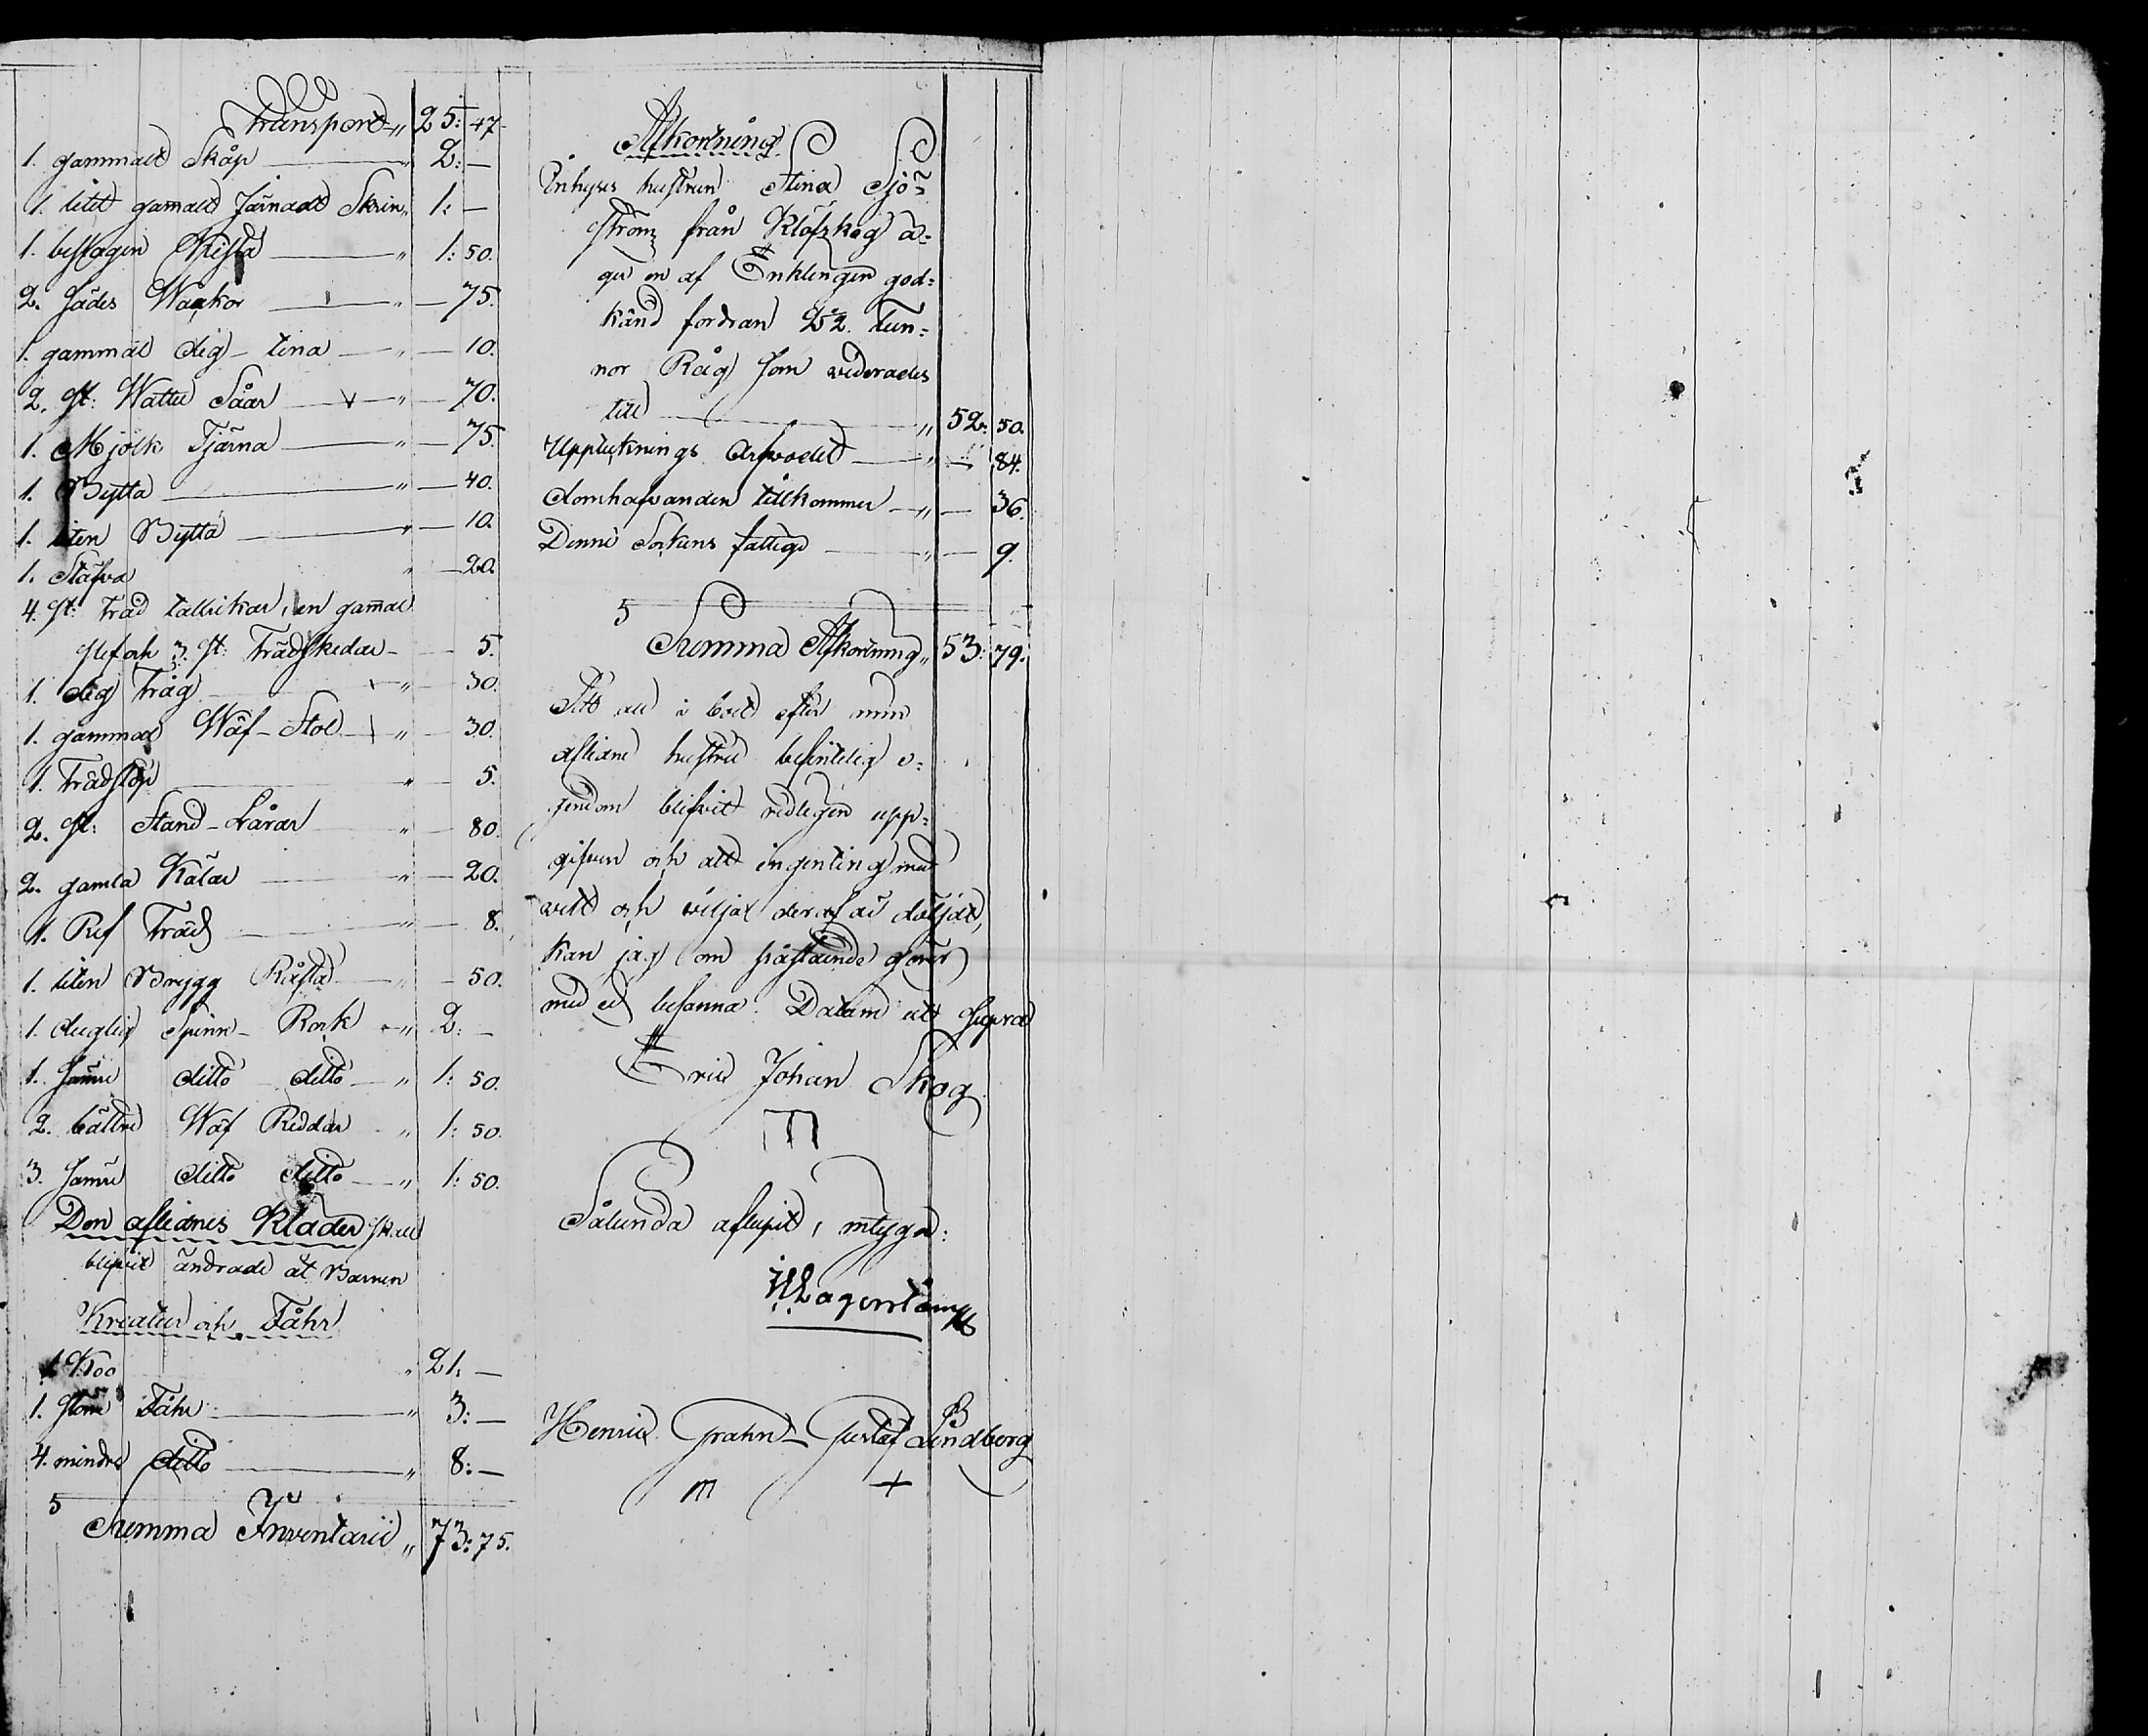 Transport " 25: 47.
1. gammalt Skåp " 2: —
1. litet gamalt Järnadt Skrin " 1: —
1. beslagen Kista " 1: 50.
2. Sädes Wackor " — 75.
1. gammal deg-tina " — 10.
2. st: Wattu Såar " — 70.
1. Mjölk Tjärna " — 75.
1. Bytta " — 40.
1. liten Bytta " — 10.
1. Stäfva " — 20.
4. st: träd tallrikar, en gamal
slef och 3. st: Trädskedar — 5.
1. deg tråg " — 30.
1. gammal Wäf-Stol " — 30.
1. Trädstop " — 5.
2. st: Stand-Lårar " — 80.
2. gamla Kälar " — 20.
1. Ref Träd " — 8.
1. liten Brygg " — 50.
1. duglig Spinn-Rock " 2: —
1. Sämre ditto ditto " 1: 50.
2. bättre Wäf Reddar " 1: 50.
3. Sämre ditto ditto " 1: 50.
Den aflednes Kläder skall
blifvit ändrade åt Barnen
Kreatur och Fåhr
1 Koo " 21. —
1. större Fåhr " 3: —
4. mindre ditto " 8: —
Summa Inventarii " 73: 75.
Afkortning
Inhyses hustrun Stina Sjö=
ström från Klåfskog ä=
ger en af Enklingen god=
känd fordran 2 tun=
nor Råg som värderades
till " 52: 50.
Uppteknings Arfvodet " — 84.
domhafvanden tillkommer " — 36.
Denne Sockens fattige " — 9.
Summa Afkortning " 53: 79.
att all i boet efter min
aflidne hustru befintelig e=
gendom blifvit redligen upp=
gifven och att ingenting med
vett och vilja deraf är doljdt,
kan jag om påstående göres
med ed besanna. Datum ut supra
Eric Johan Skog
Sålunda aflupit, intyga:
Lagerstam
Henric Grahn Gustaf Lindberg
m +